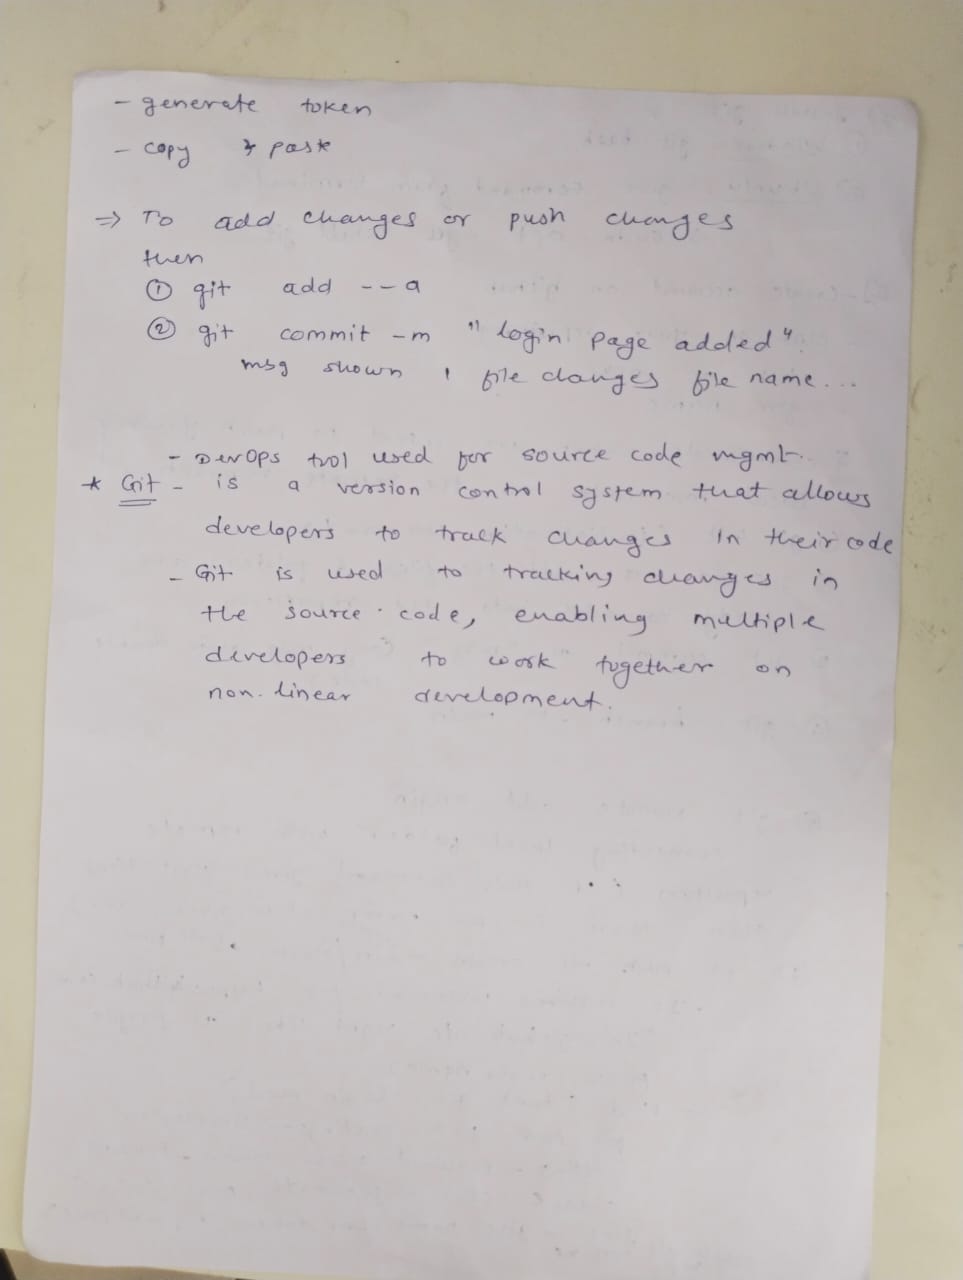 - generate token
- copy & paste
⇒ To add changes or push changes
then
① git add --a
② git commit -m "login page added".
msg shown 1 file changes file name...
- DevOps tool used for source code mgmt.
* Git - is a version control system that allows
developers to track changes in their code
- Git is used to tracking changes in
the source code, enabling multiple
developers to work together on
non-linear development.